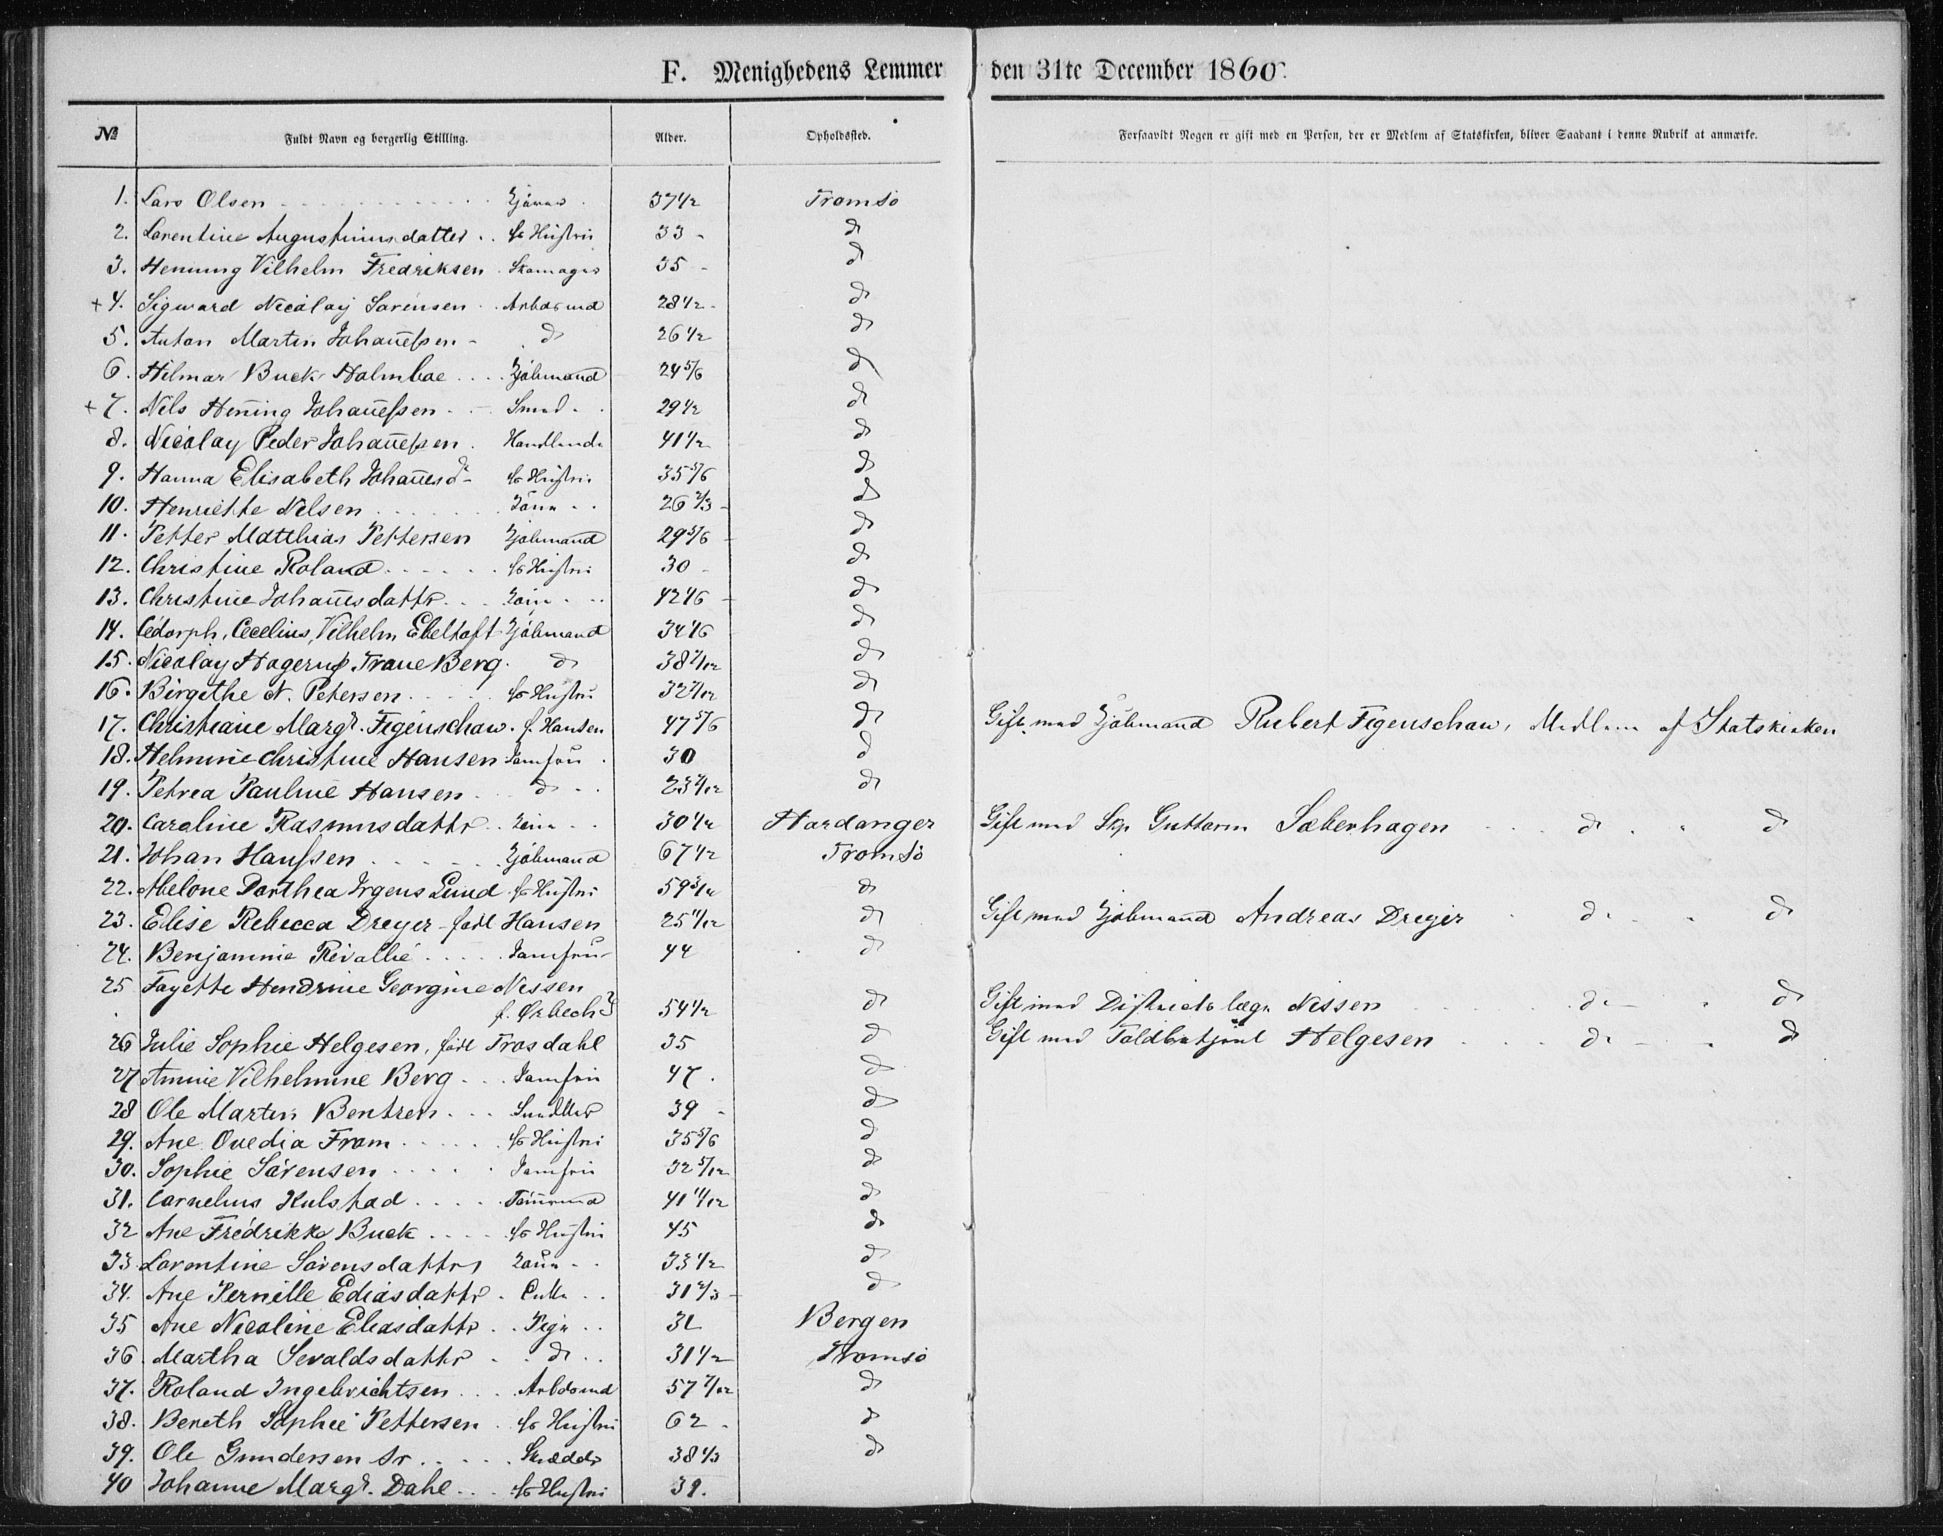 F. Menighedens Lemmer den 31te December 1860.
No Fuldt Navn og borgerlig Stilling. Alder. Opholdssted. Forsaavidt Nogen er gift med en Person, der er Medlem af Statskirken, bliver Saadant i denne Rubrik at anmærke.
1. Lars Olsen 37 1/2 Tromsö
2. Lorentine Augustinusdatter Hustru 33 do
3. Henning Vilhelm Fredriksen Skomager 35 do
+ 4. Sigward Nicolay Sörensen Arbdsmd 28 1/2 do
5. Anton Martin Johanneßen do 26 1/2 do
6. Hilmar Buck Holmboe Kjöbmand 24 5/6 do
+ 7. Nils Hening Johanneßen Smed 29 1/2 do
8. Nicolay Peder Johanneßen Handlende 41 1/2 do
9. Hanna Elisabeth Johannesdr Hustru 35 5/6 do
10. Henriette Nilsen 26 2/3 do
11. Petter Matthias Pettersen Kjöbmand 29 5/6 do
12. Christine Roland Hustru 30 do
13. Christine Johannesdattr 42 1/6 do
14. Cecelius, Vilhelm Ebeltoft Kjöbmand 34 1/6 do
15. Nicolay Hagerup Trane Berg do 38 do
16. Birgithe N. Petersen Hustru 32 do
17. Christiane Margr. Figenschaw f. Hansen 47 5/6 do Gift med Kjöbmand Rubert Figenschaw, Medlem af Statskirken
18. Helmine Christine Hansen Jomfru 30 do
19. Petrea Pauline Hansen do 23 do
20. Caroline Rasmusdattr 30 1/2 Hardanger Gift med Guttorm Sæberhagen do do
21. Johan Hanssen Kjöbmand 67 1/2 Tromsö
22. Abelone Dorthea Irgens Lund Hustru 59 do
23. Elise Rebecca Dreyer född Hansen 25 11/12 do Gift med Kjöbmand Andreas Dreyer do do
24. Benjamine Jomfru 44 do
25 Fayette Hendrine Georgine Nissen
f. Örbech 54 1/2 do Gift med Districtslæge Nissen do do
26 Julie Sophie Helgesen, född Trosdahl 35 do Gift med Helgesen do do
27 Amine Vilhelmine Berg Jomfru 47. do
28 Ole Martin Bentzen 39 do
29. Ane Ovedia From Hustru 35 5/6 do
30. Sophie Sörensen Jomfru 32 5/12 do
31. Cornelius Hulstad 41 11/12 do
32 Ane Fredrikke Buck Hustru 45 do
33 Lorentine Sörensdattr 33 1/2 do
34. Ane Pernille Ediasdattr Enke 31 2/3 do
35 Ane Nicoline Eliasdattr Pige Bergen
36 Martha Sevaldsdattr do 31 1/2 Tromsö
37. Roland Ingebrichtsen Arbdsmd 57 do
38. Bereth Sophie Pettersen Hustru 62 do
39. Ole Gundersen sr Skrædder 38 1/3 do
40 Johanne Margr. Dahl Hustru 39.